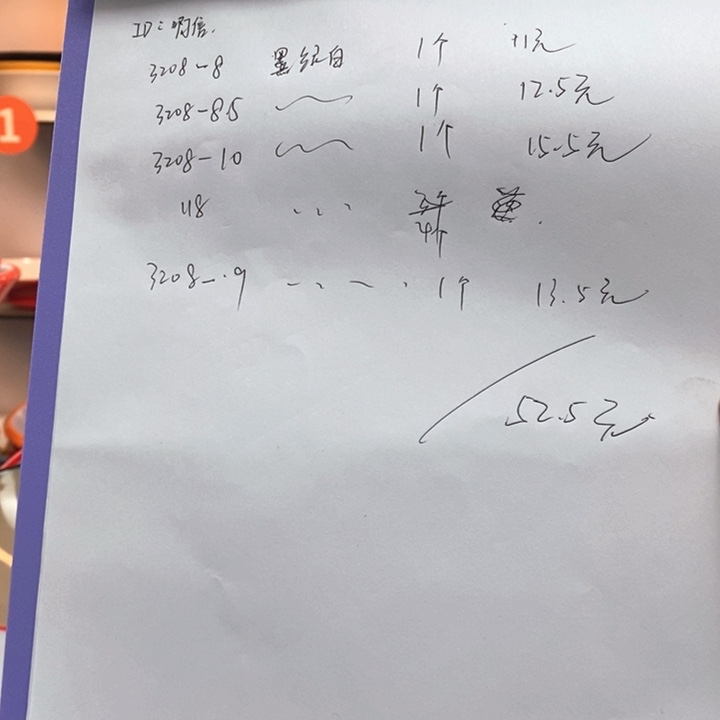 1
ID：明信.
3208-8 黑红白 1个 11元
3208-8.5 〃 1个 12.5元
3208-10 〃 1个 15.5元
118 ... 4个
3208-9 .... 1个 13.5元
52.5元